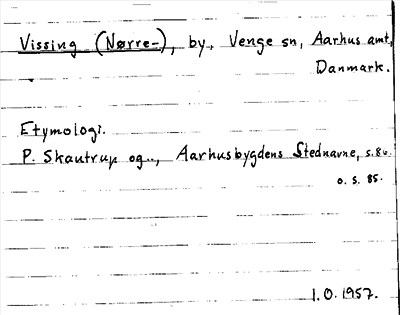 Vissing (Nørre-), by, Venge sn, Aarhus amt,
Danmark.
Etymologi.
P. Skautrup og.., Aarhusbygdens Stednavne, s.80.
o. s. 85.
1.0.1957.